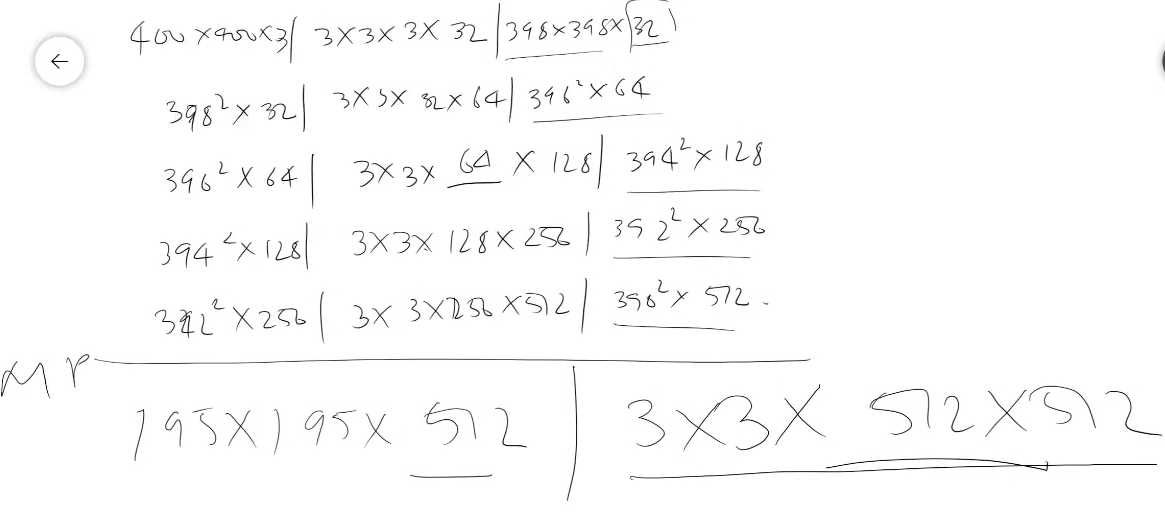 400×400×3| 3×3×3×32|398×398×32|
398²×32| 3×3×32×64| 396²×64
396²×64| 3×3×64×128| 394²×128
394²×128| 3×3×128×256| 392²×256
392²×256| 3×3×256×512| 390²×512.
MP
195×195×512 | 3×3×512×512